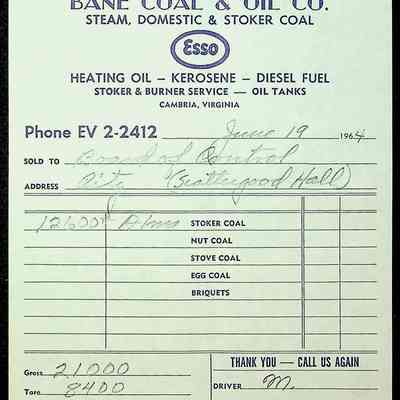 BANE COAL & OIL CO.
STEAM, DOMESTIC & STOKER COAL
Esso
HEATING OIL — KEROSENE — DIESEL FUEL
STOKER & BURNER SERVICE — OIL TANKS
CAMBRIA, VIRGINIA
Phone EV 2-2412 June 19 1964
SOLD TO Board of Control
ADDRESS City (Scattergood Hall)
12600# STOKER COAL
NUT COAL
STOVE COAL
EGG COAL
BRIQUETS
Gross 21000
Tare 8400
THANK YOU — CALL US AGAIN
DRIVER M.